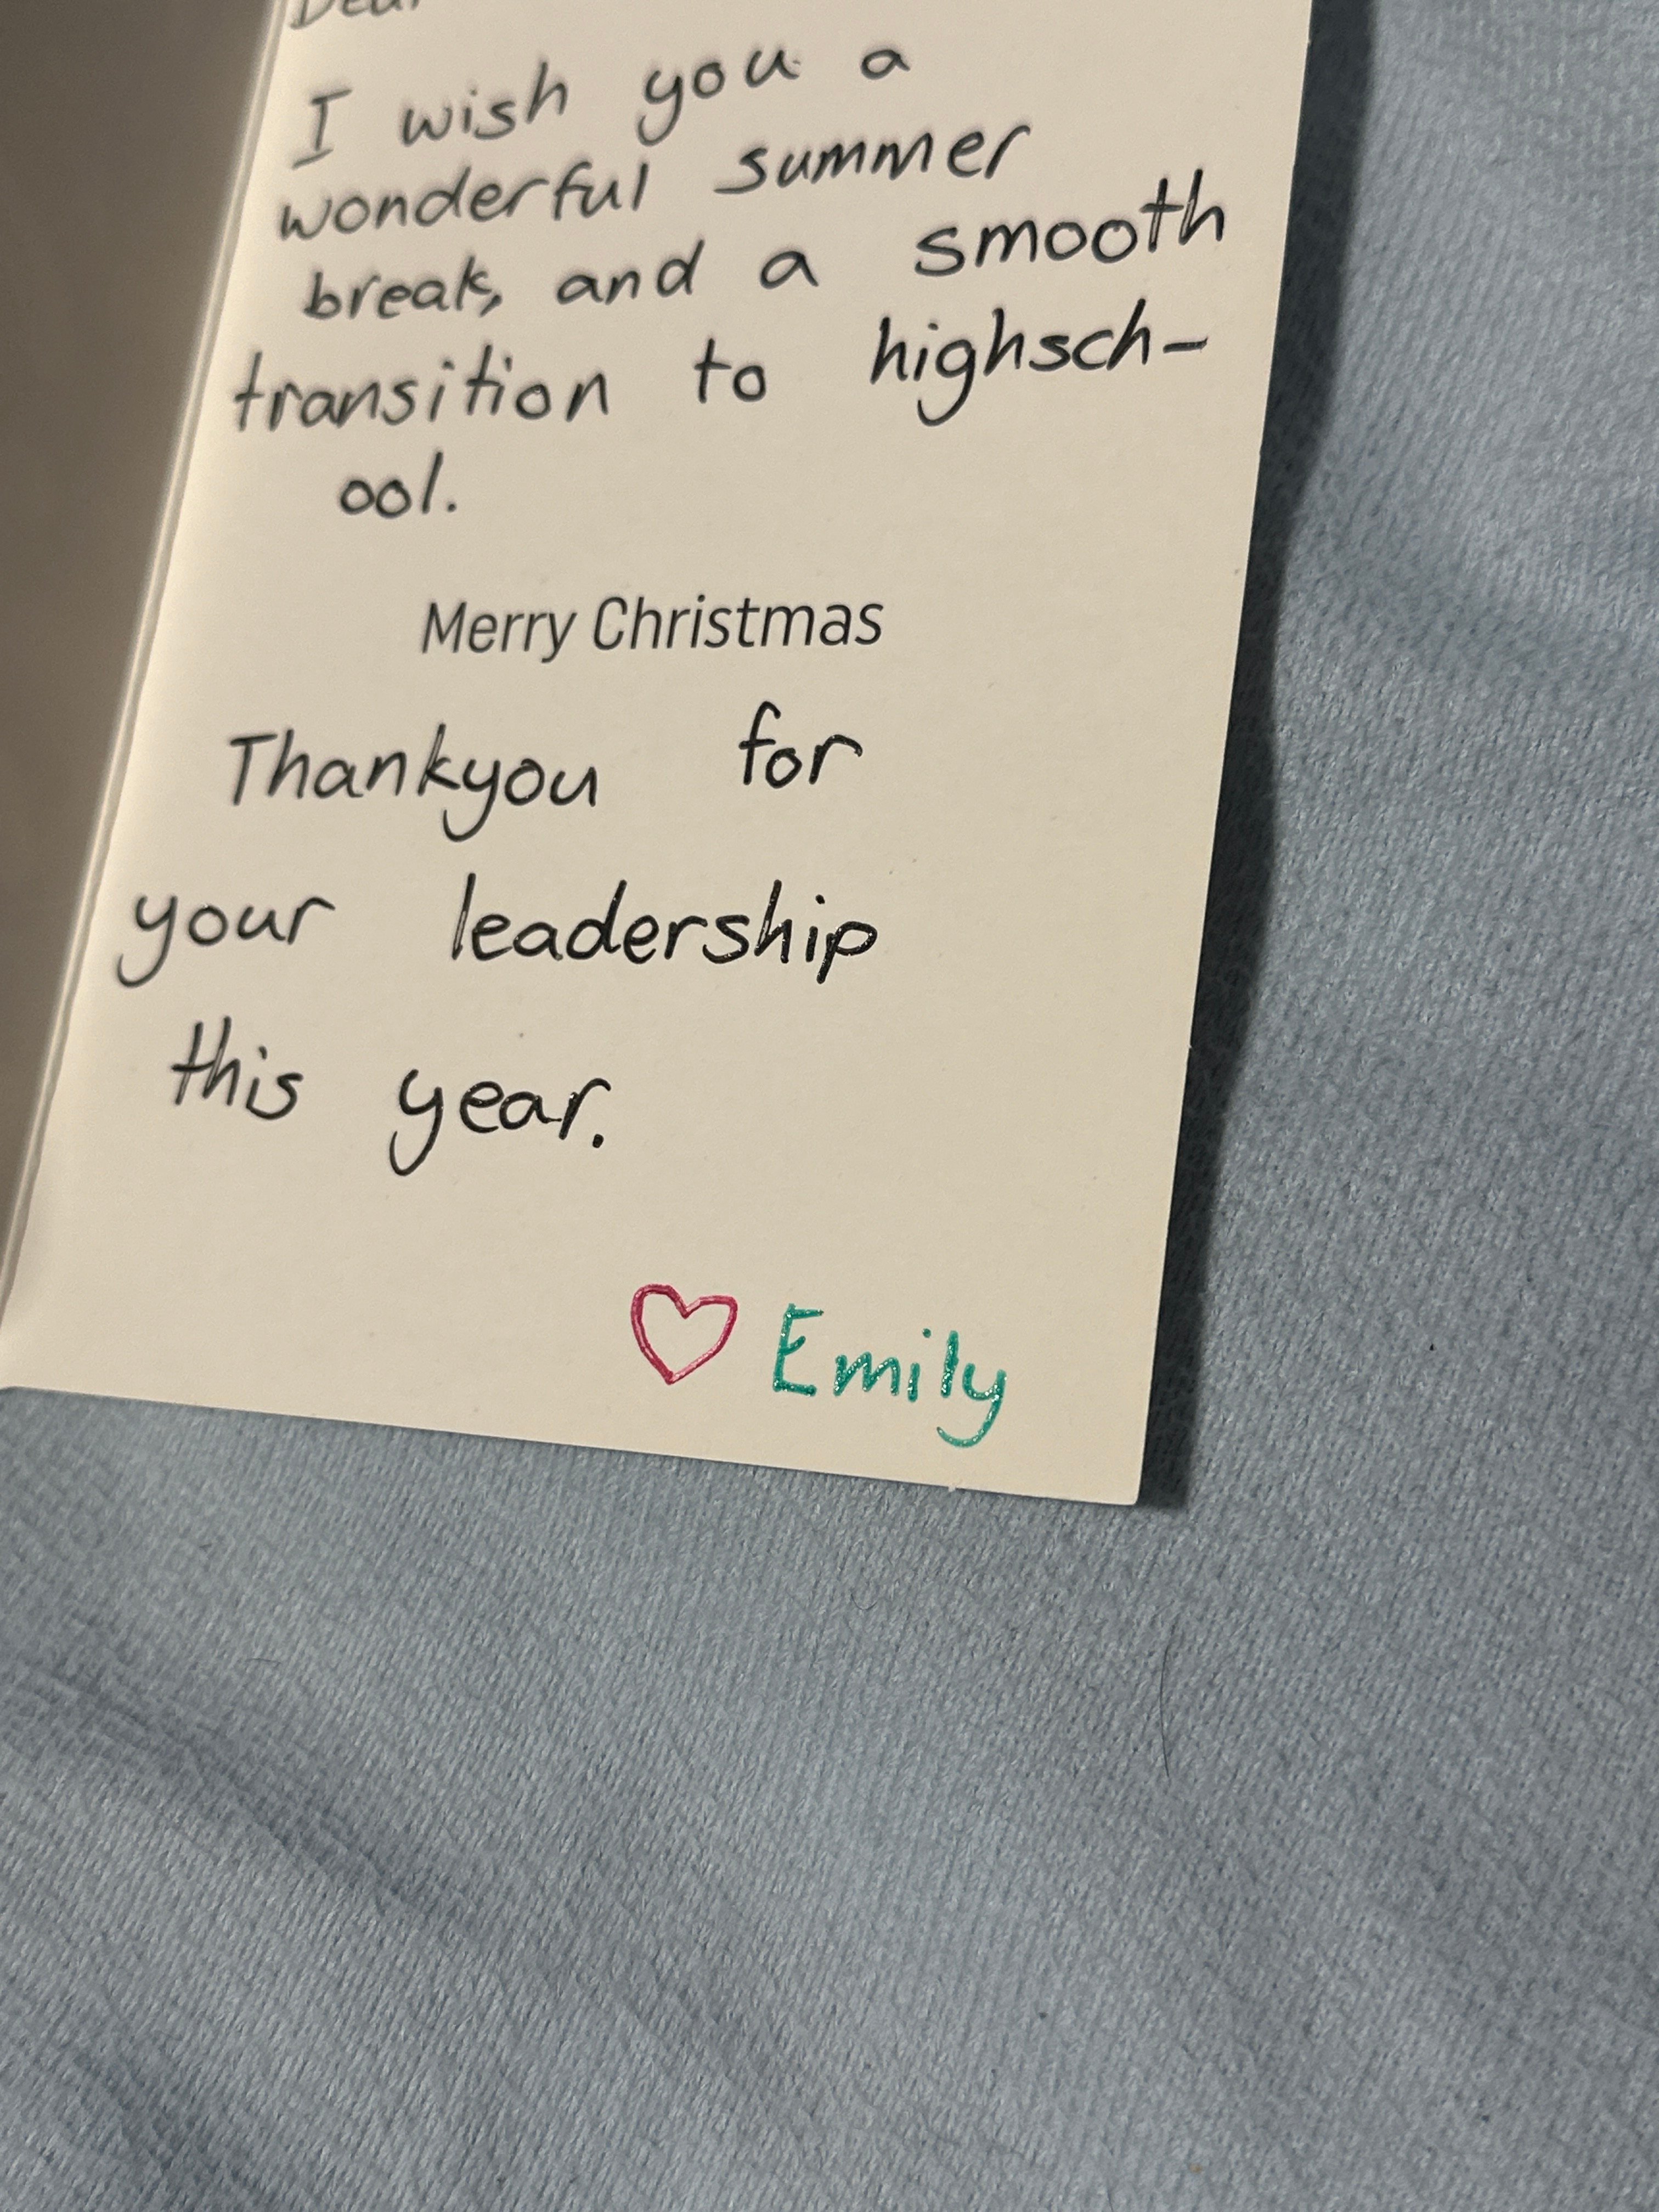 Dear
I wish you a
wonderful summer
break, and a smooth
transition to highsch-
ool.
Merry Christmas
Thankyou for
your leadership
this year.
♡ Emily